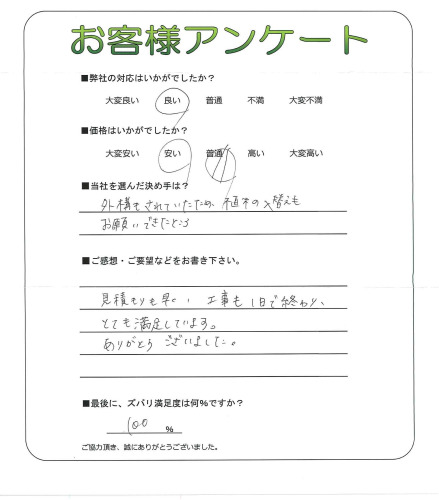 お客様アンケート
■弊社の対応はいかがでしたか?
大変良い 良い 普通 不満 大変不満
■価格はいかがでしたか?
大変安い 安い 普通 高い 大変高い
■当社を選んだ決め手は?
外構もされていたため、植木の入替えも
お願いできたところ
■ご感想・ご要望などをお書き下さい。
見積もりも早い 工事も1日で終わり、
とても満足しています。
ありがとう ございました。
■最後に、ズバリ満足度は何%ですか?
100 %
ご協力頂き、誠にありがとうございました。